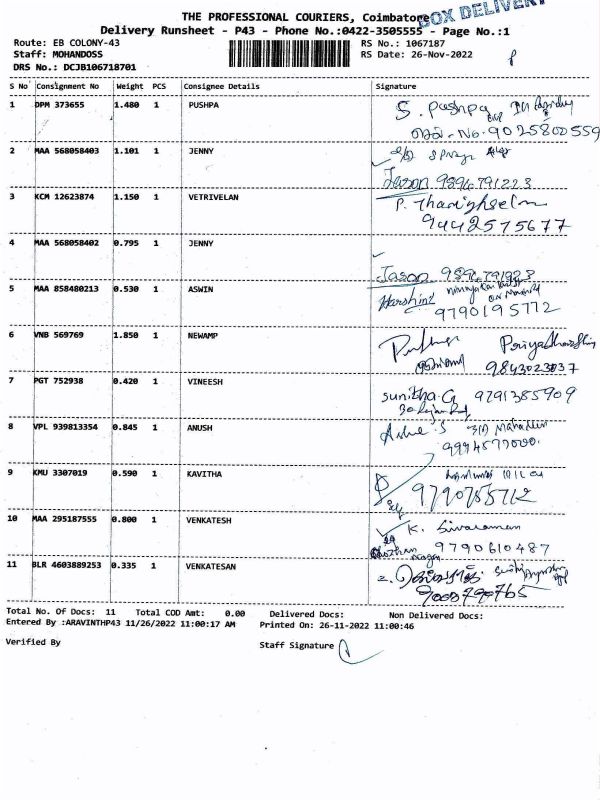 THE PROFESSIONAL COURIERS, Coimbatore
BOX DELIVERY
Delivery Runsheet - P43 - Phone No.:0422-3505555 - Page No.:1
Route: EB COLONY-43 RS No.: 1067187
Staff: MOHANDOSS RS Date: 26-Nov-2022
DRS No.: DCJB106718701
S No Consignment No Weight PCS Consignee Details Signature
1 DPM 373655 1.480 1 PUSHPA S. Pushpa
9025800559
2 MAA 568058403 1.101 1 JENNY
Jason 9894791223
3 KCM 12623874 1.150 1 VETRIVELAN
9442575677
4 MAA 568058402 0.795 1 JENNY
Jason 9894791223
5 MAA 858480213 0.530 1 ASWIN Harshini
9790195772
6 VNB 569769 1.850 1 NEWAMP
9843023037
7 PGT 752938 0.420 1 VINEESH sunitha.G 9791385909
8 VPL 939813354 0.845 1 ANUSH
9 KMU 3307019 0.590 1 KAVITHA
10 MAA 295187555 0.800 1 VENKATESH K. Sivaraman
9790610487
11 BLR 4603889253 0.335 1 VENKATESAN
Total No. Of Docs: 11 Total COD Amt: 0.00 Delivered Docs: Non Delivered Docs:
Entered By :ARAVINTHP43 11/26/2022 11:00:17 AM Printed On: 26-11-2022 11:00:46
Verified By Staff Signature